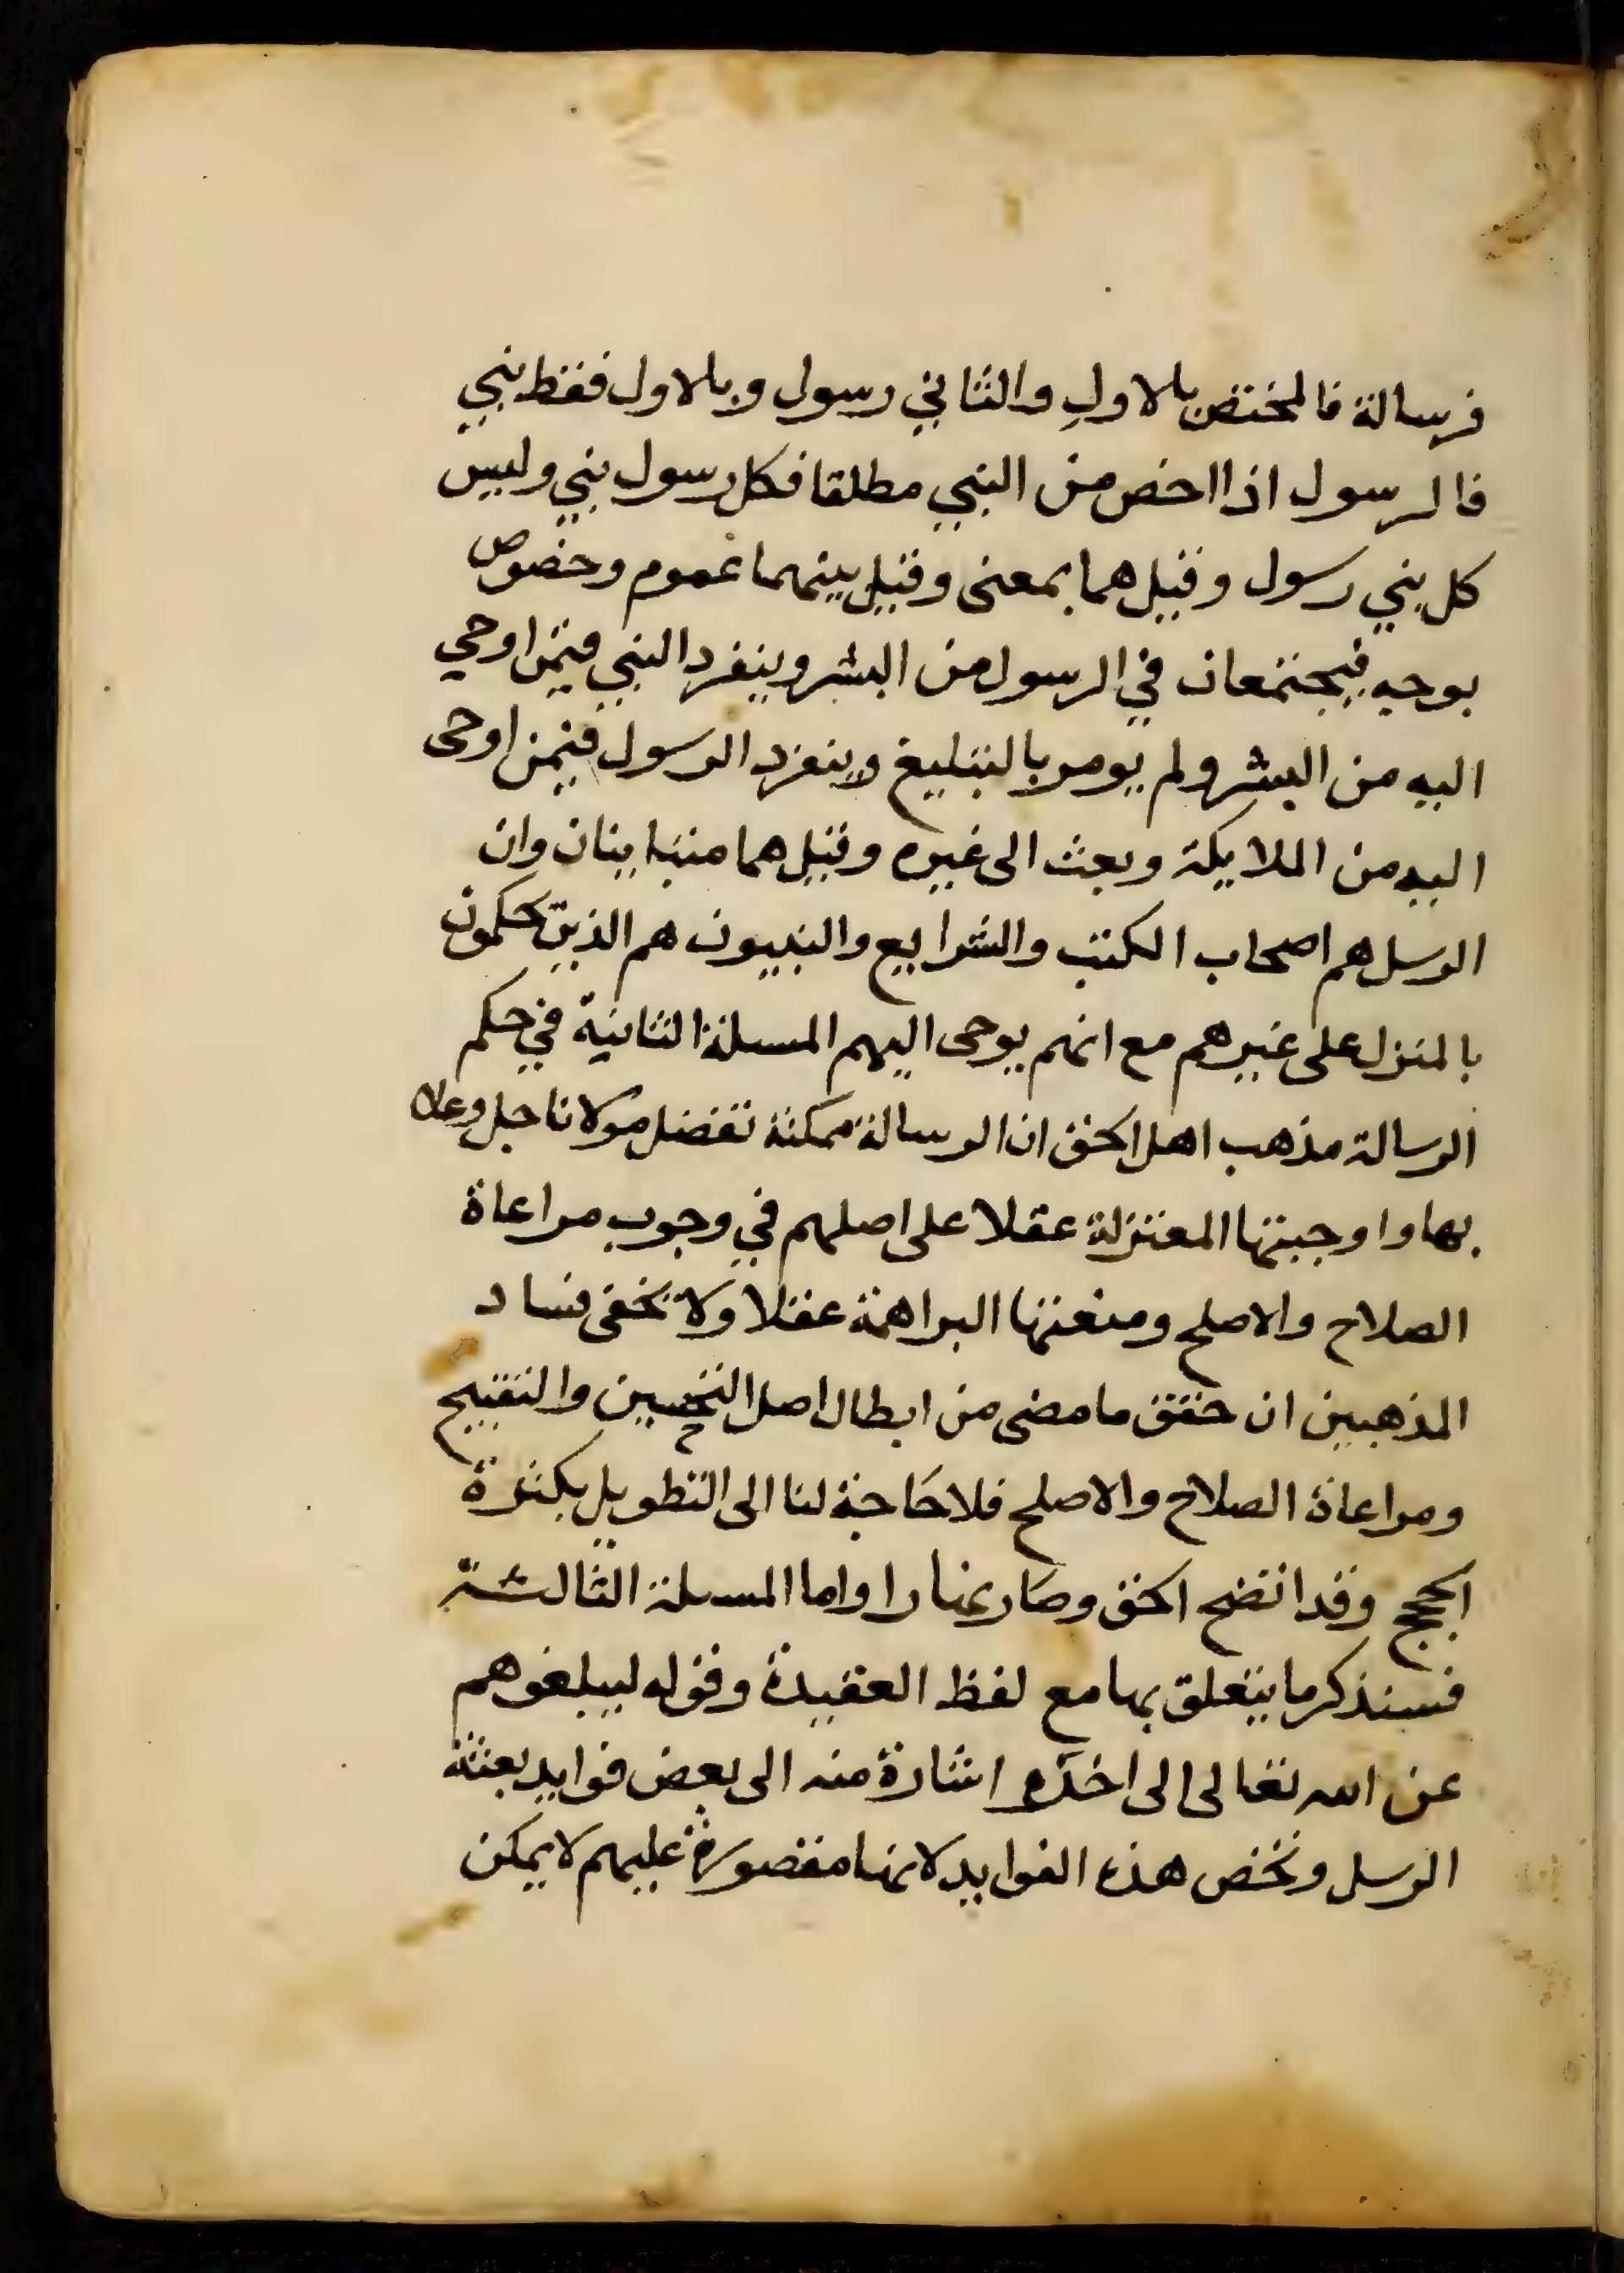 فرسالة فالمختص بالاول والثاني رسول وبالاول فقط نبي
فالرسول اذا اخص من النبي مطلقا فكل رسول نبي وليس
كل نبي رسول وقيل هما بمعنى وقيل بينهما عموم وخصوص
بوجه فيجتمعان في الرسول من البشر وينفرد النبي فيمن اوحي
اليه من البشر ولم يومر بالتبليغ وينفرد الرسول فيمن اوحى
اليه من الملايكة وبعث الى غيره وقيل هما متباينان وان
الرسل هم اصحاب الكتب والشرايع والنبيون هم الذين يحكمون
بالمنزل على غيرهم مع انهم يوحى اليهم المسلة الثانية في حكم
الرسالة مذهب اهل الحق ان الرسالة ممكنة تفضل مولانا جل وعلا
بها واوجبتها المعتزلة عقلا على اصلهم في وجوب مراعاة
الصلاح والاصلح ومنعتها البراهمة عقلا ولا يخفى فساد
المذهبين ان حقق ما مضى من ابطال اصل التحسين والتقبيح
ومراعاة الصلاح والاصلح فلا حاجة لنا الى التطويل بكثرة
الحجج وقد اتضح الحق وصار نهارا واما المسلة الثالثة
فسنذكر ما يتعلق بها مع لفظ العقيدة وقوله ليبلغوهم
عن الله تعالى الى اخره اشارة منه الى بعض فوايد بعثة
الرسل وتخص هذه الفوايد لانها مقصورة عليهم لا يمكن